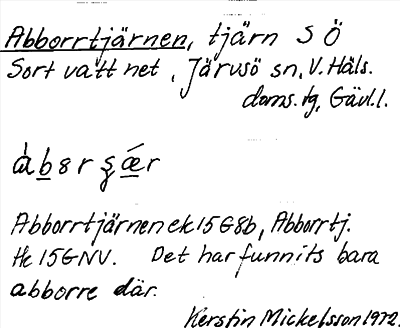 Abborrtjärnen, tjärn S Ö
Sortvattnet, Järvsö sn, V. Häls.
doms. tg, Gävl. l.
Abborrtjärnen ek 15G8b, Abborrtj.
Hc 15GNV. Det har funnits bara
abborre där.
Kerstin Mickelsson 1972.